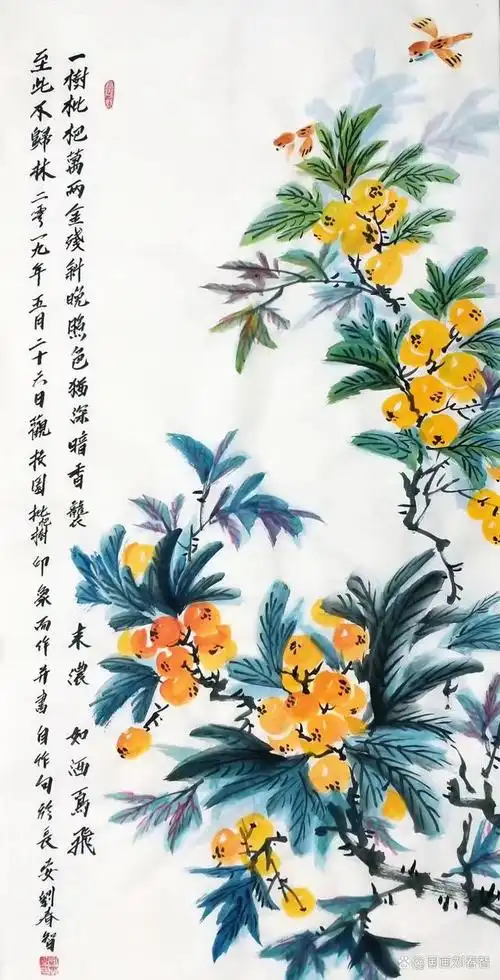 一樹枇杷萬兩金殘斜晚照色猶深暗香襲来濃如酒鳥飛
至此不歸林二零一九年五月二十六日觀校園枇樹印象而作并書自作句於長安劉春智
国画刘春智